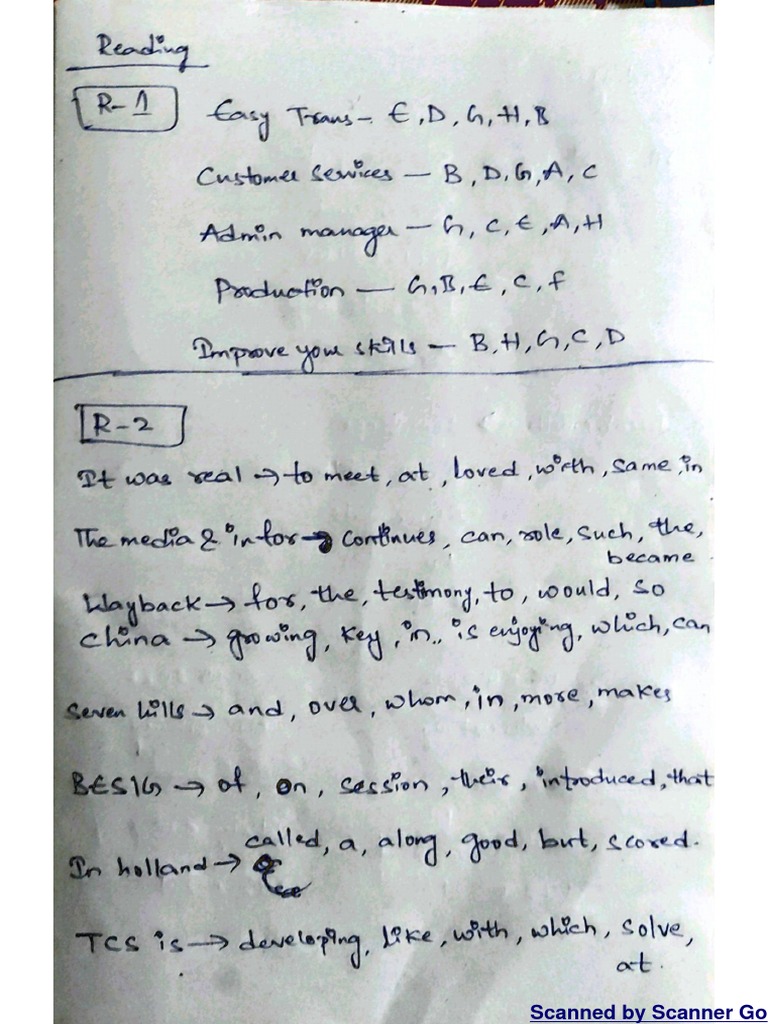 Reading
R-1
Easy Trans - E, D, G, H, B
Customer services - B, D, G, A, C
Admin manager - G, C, E, A, H
Production - G, B, E, C, F
Improve your skills - B, H, G, C, D
R-2
It was real → to meet, at, loved, with, same, in
The media & infor → continues, can, role, such, the,
became
Wayback → for, the, testimony, to, would, so
China → growing, key, in, is enjoying, which, can
Seven hills → and, over, whom, in, more, makes
BESIG → of, on, session, their, introduced, that
called, a, along, good, but, scored.
In holland →
TCS is → developing, like, with, which, solve,
at.
Scanned by Scanner Go